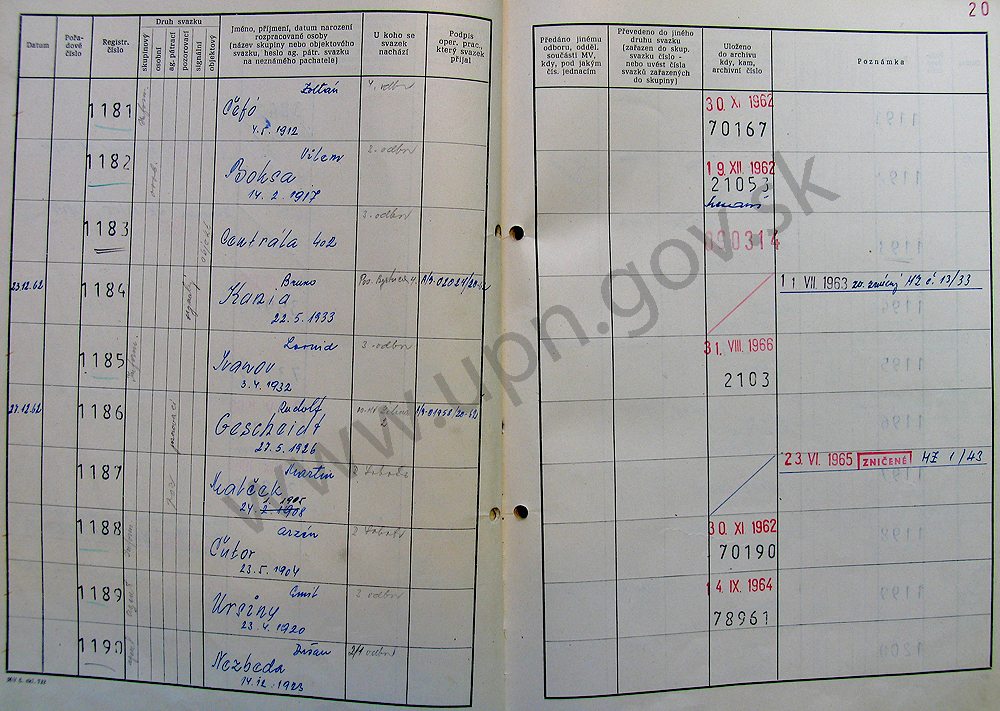 20
Datum
Pořadové číslo
Registr. číslo
Druh svazku
skupinový
osobní
ag. pátrací
pozorovací
signální
objektový
Jméno, příjmení, datum narození
rozpracované osoby
(název skupiny nebo objektového
svazku, heslo ag. pátr. svazku
na neznámého pachatele)
U koho se
svazek
nachází
Podpis
oper. prac.,
který svazek
přijal
Předáno jinému
odboru, odděl.
součásti MV,
kdy, pod jakým
čís. jednacím
Převedeno do jiného
druhu svazku
(zařazen do skup.
svazku číslo -
nebo uvést čísla
svazků zařazených
do skupiny)
Uloženo
do archivu
kdy, kam,
archivní číslo
Poznámka
1181 Zoltán 4. odbor
Čéfó
4. 5. 1912
30. XI. 1962
70167
1182 Vilem 2. odbor
Boksa
14. 2. 1917
19. XII. 1962
21053
1183 objekt 3. odbor
Centrála 402
000314
23.12.62 1184 Bruno
Kania
22. 5. 1933
11. VII. 1963 HZ č. 13/33
1185 Inform. 3. odbor
Ivanov
3. 4. 1932
31. VIII. 1966
2103
27.12.62 1186 Rudolf
Gescheidt
27. 5. 1926
1187 Martin
24. 2. 1908
23. VI. 1965 ZNIČENÉ HZ 1/43
1188 Arzén
Čutor
23. 5. 1904
30. XI 1962
70190
1189 Ernst 2 odbor
Ursíny
23. 4. 1920
14. IX. 1964
78961
1190 Dušan 2/1 odbor
Nezbeda
14. 12. 1923
www.upn.gov.sk